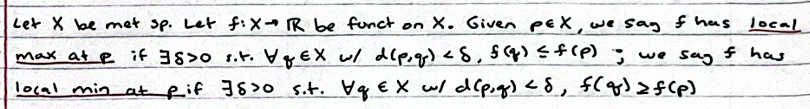 Let X be met sp. Let f: X → ℝ be funct on X. Given p∈X, we say f has local
max at p if ∃δ>0 s.t. ∀q∈X w/ d(p,q)<δ, f(q) ≤ f(p) ; we say f has
local min at p if ∃δ>0 s.t. ∀q∈X w/ d(p,q)<δ, f(q) ≥ f(p)